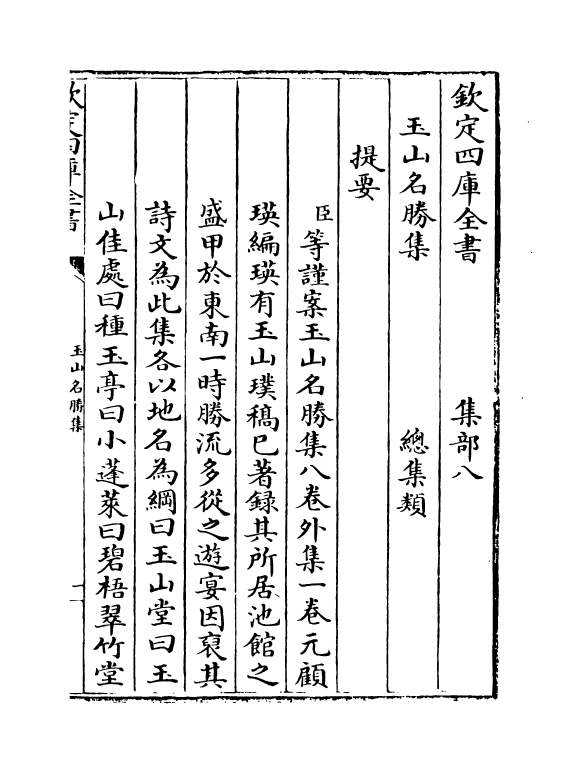 欽定四庫全書　集部八
玉山名勝集　總集類
提要
臣等謹案玉山名勝集八卷外集一卷元顧
瑛編瑛有玉山璞稿已著録其所居池館之
盛甲於東南一時勝流多從之遊宴因裒其
詩文為此集各以地名為綱曰玉山堂曰玉
山佳處曰種玉亭曰小蓬萊曰碧梧翠竹堂
欽定四庫全書
玉山名勝集
一